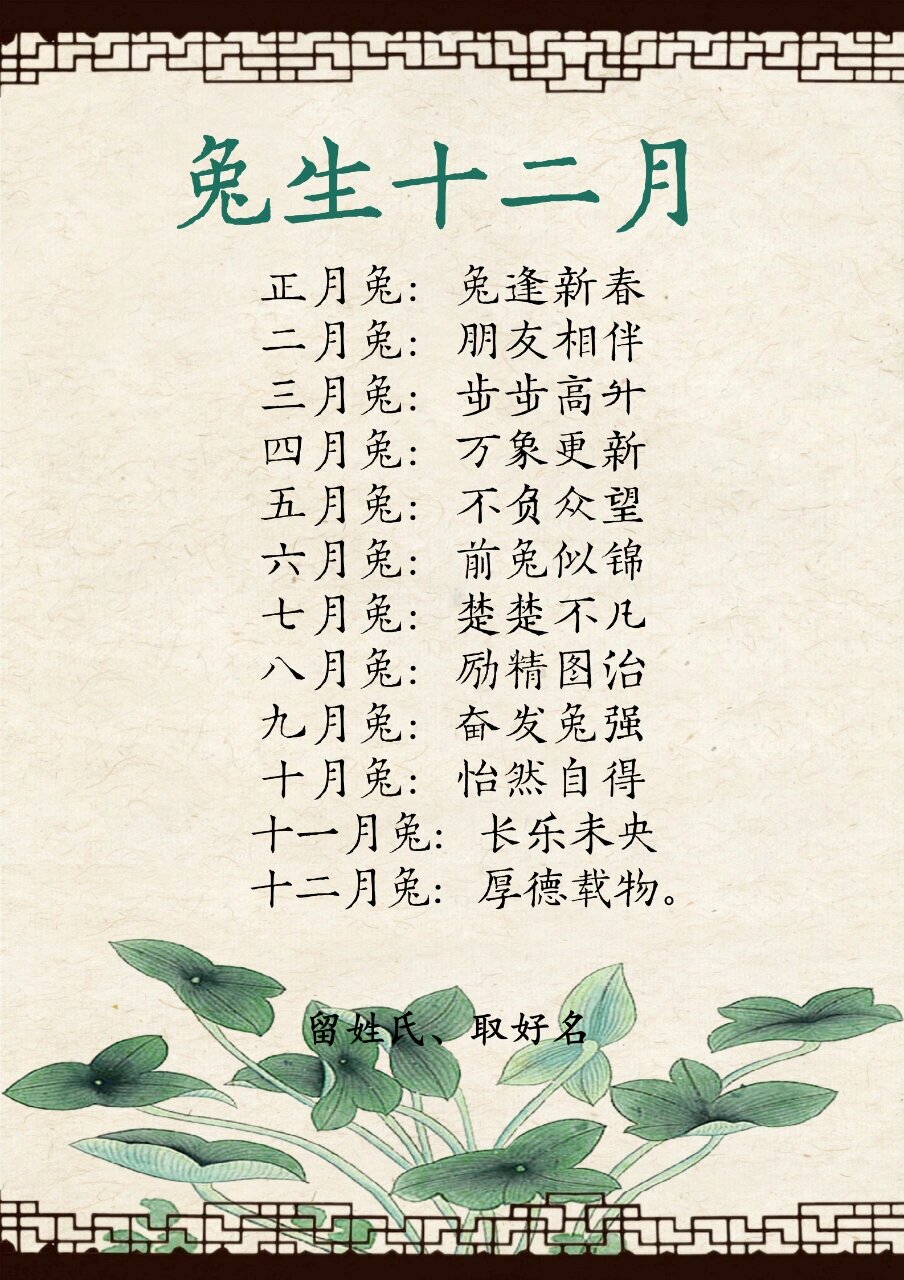 兔生十二月
正月兔： 兔逢新春
二月兔： 朋友相伴
三月兔： 步步高升
四月兔： 万象更新
五月兔： 不负众望
六月兔： 前兔似锦
七月兔： 楚楚不凡
八月兔： 励精图治
九月兔： 奋发兔强
十月兔： 怡然自得
十一月兔： 长乐未央
十二月兔： 厚德载物。
留姓氏、取好名